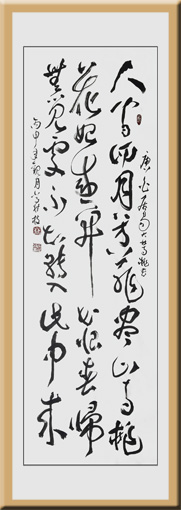 人间四月芳菲尽山寺桃
唐白居易大林寺桃花
花始盛开长恨春归
無觅處不知转入此中来
丙申 月